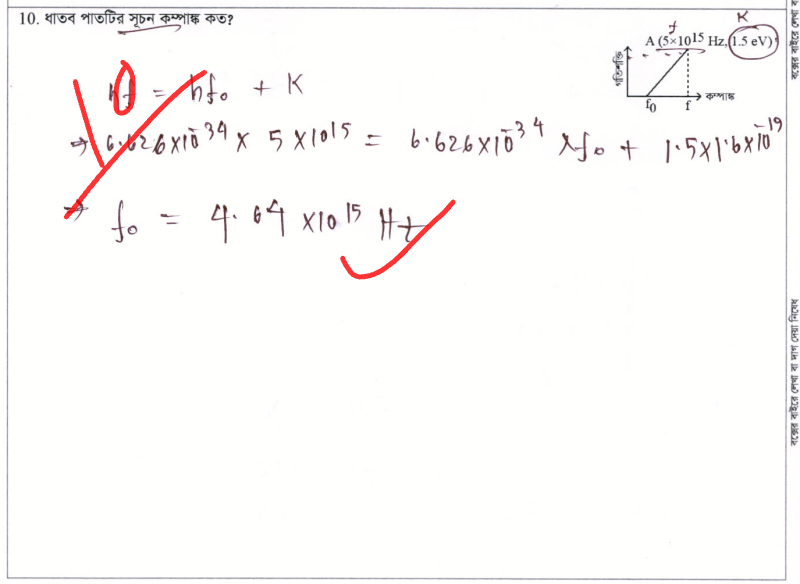 10. ধাতব পাতটির সূচন কম্পাঙ্ক কত?
K
f
A (5×10¹⁵ Hz, 1.5 eV)
গতিশক্তি
f₀ f কম্পাঙ্ক
hf = hf₀ + K
⇒ 6.626×10⁻³⁴ × 5×10¹⁵ = 6.626×10⁻³⁴ × f₀ + 1.5×1.6×10⁻¹⁹
⇒ f₀ = 4.64 ×10¹⁵ Hz
বক্সের বাইরে লেখা বা দাগ দেয়া নিষেধ